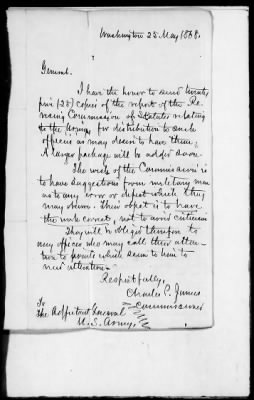 Washington 25 May 1868.
General.
I have the honor to send twenty
five (25) copies of the report of the Re-
vising Commission of Statutes relating
to the Army, for distribution to such
officers as may desire to have them.
A larger package will be added soon.
The wish of the Commissioners is
to have suggestions from military men
as to any error or defect which they
may deem. Their object is to have
the work correct, not to avoid criticism
They will be obliged therefore to
any officers who may call their atten-
tion to points which seem to him to
need attention.
Respectfully,
Charles P. James
Commissioner
To
The Adjutant General
U.S. Army.